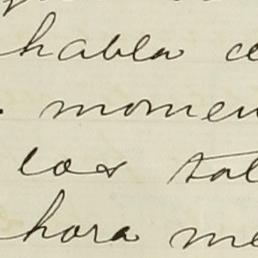 habla ce
momen
los sal
hora me